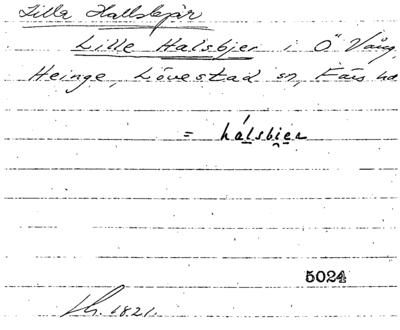 Lilla Hallsbjär
Lille Halsbjer i Ö Vång,
Heinge, Lövestad sn, Färs hd
= hálsbier
5024
1821.